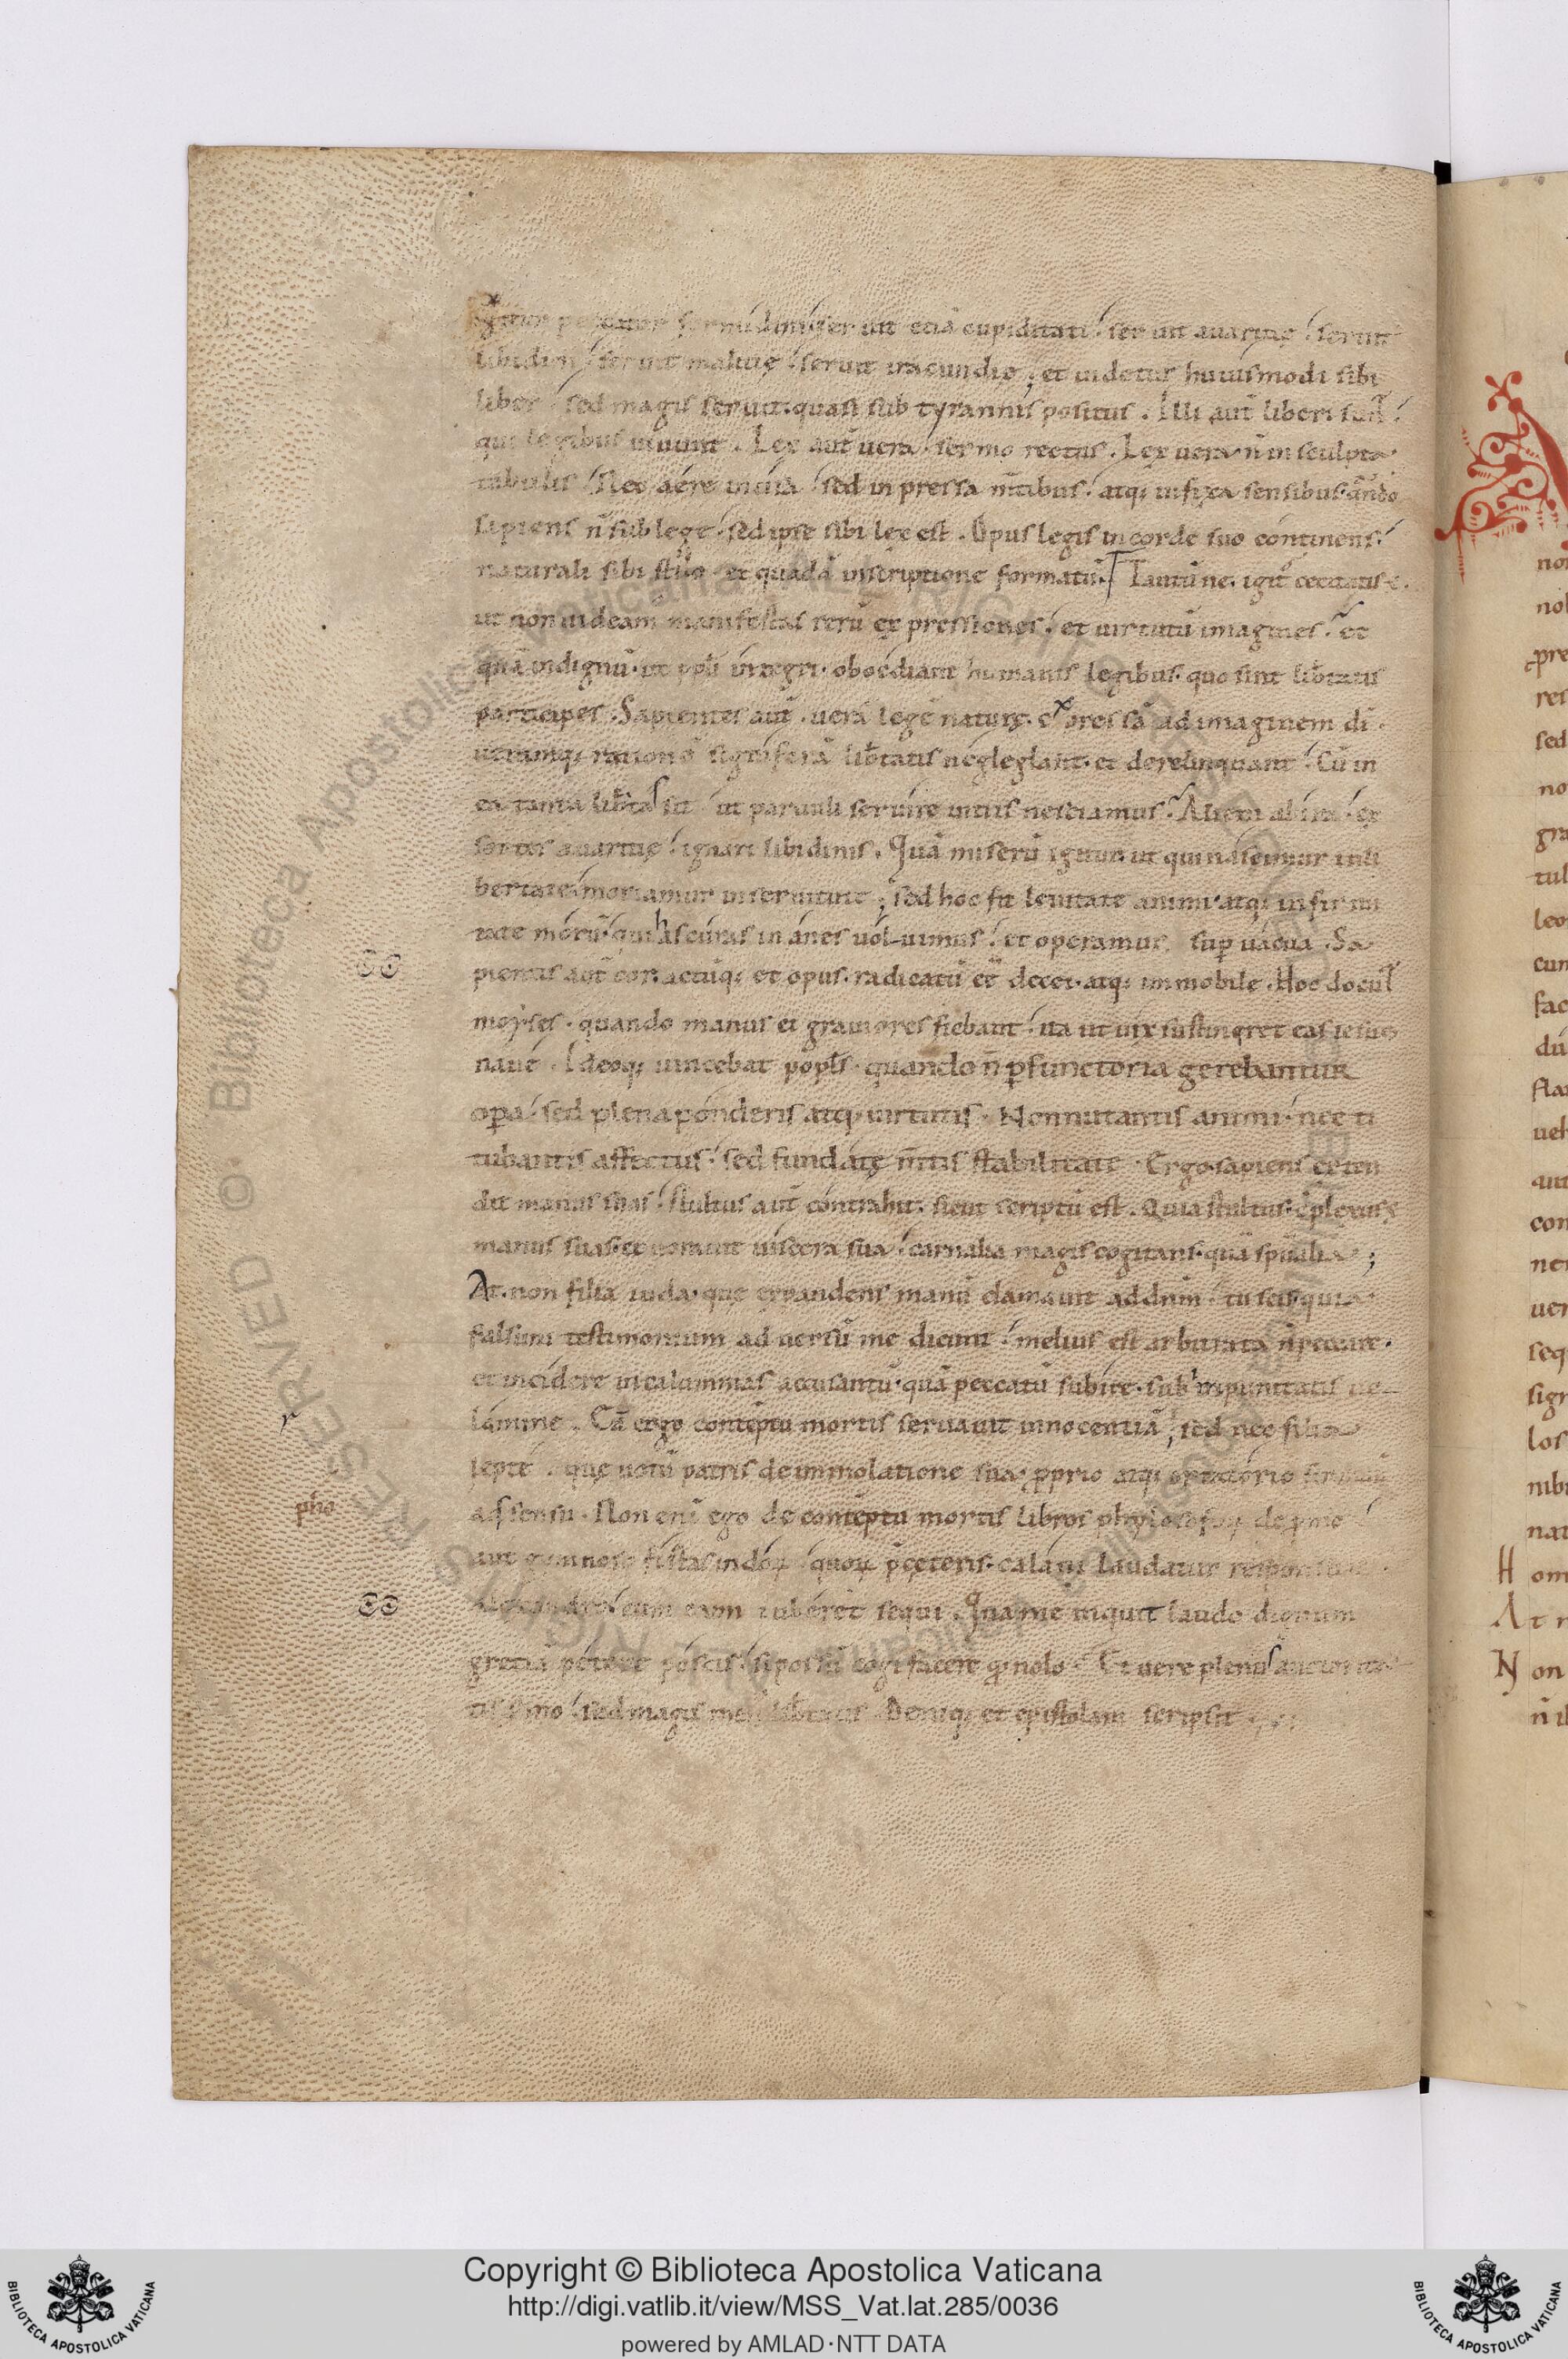 seruit etiã cupiditati. seruit auaritię. seruit
libidini. seruit malitię. seruit iracundię; et uidetur huiusmodi sibi
liber. sed magis seruit. quasi sub tyrannis positus. Illi aut̄ liberi sun̄t
qui legibus uiuunt. Lex aut̄ uera. sermo rectus. Lex uera. n̄ in sculpta
tabulis. Nec aére incisa. sed inpressa m̄tibus. atq; infixa sensibus.
sapiens n̄ sub lege. sed ipse sibi lex est. Opus legis in corde suo continens.
naturali sibi stilo. et quadã inscriptione formatũ. Tantũ ne. igit̄ cecitatis ē.
ut non uideam manifestas rerũ expressiones. et uirtutũ imagines. et
quã indignũ. ut ppłi integri. oboediant humanis legibus. quo sint lib̄tatis
participes. Sapientes aut̄. uerã legẽ naturę. expressã ad imaginem dī.
ueramq; rationẽ signiferã lib̄tatis neglegant. et derelinquant. Cũ in
ea tanta lib̄tas sit. ut paruuli seruire uitiis nesciamus. Alieni ab ira. ex
sortes auaritię. ignari libidinis. Quã miserũ igitur. ut qui nascimur in li
bertate. moriamur in seruitute; sed hoc fit leuitate animi. atq; infirmi
tate morũ. quia curas inanes uoluimus. et operamur. sup uacua. Sa
pientis aut̄ cor. actũq; et opus. radicatũ eē decet. atq; immobile. Hoc docuit
moyses. quando manus ei grauiores fiebant. ita ut uix sustineret eas iesus
naue. Ideoq; uincebat popłs. quando n̄ pfunctoria gerebantur
opa. sed plena ponderis atq; uirtutis. Non nutantis animi. nec ti
tubantis affectus. sed fundatę m̄tis stabilitate. Ergo sapiens exten
dit manus suas. stultus aut̄ contrahit. sicut scriptũ est. Quia stultus. cõplexus ē
manus suas. et uorauit uiscera sua. carnalia magis cogitans. quã spiritalia;
At. non filia iuda. quę expandens manũ clamauit ad dn̄m. tu scis quia
falsum testimonium aduersũ me dicunt. melius est arbitrata n̄ peccare.
et incidere in calumnias accusantũ. quã peccatũ subire. sub inpunitatis ue
lamine. Cã ergo contẽptu mortis seruauit innocentiã; sed nec filia
iepte. quę uotũ patris de immolatione sua. pprio atq; optatorio firmauit
adsensu. Non eni ego de contẽptu mortis libros phylosofoꝝ de promo
aut gymnosofistas indoꝝ. quoꝝ p̄ceteris. calani laudatur responsum.
alexandro. cum eum iuberet sequi. Qua me inquit laude dignum
greciã petere poscis. si possũ cogi facere qd nolo. Et uere plenus auctorita
tis sermo. sed magis mens lib̄tatis. Deniq; et epistolam scripsit
pho
Copyright © Biblioteca Apostolica Vaticana
http://digi.vatlib.it/view/MSS_Vat.lat.285/0036
powered by AMLAD·NTT DATA
BIBLIOTECA APOSTOLICA VATICANA
BIBLIOTECA APOSTOLICA VATICANA